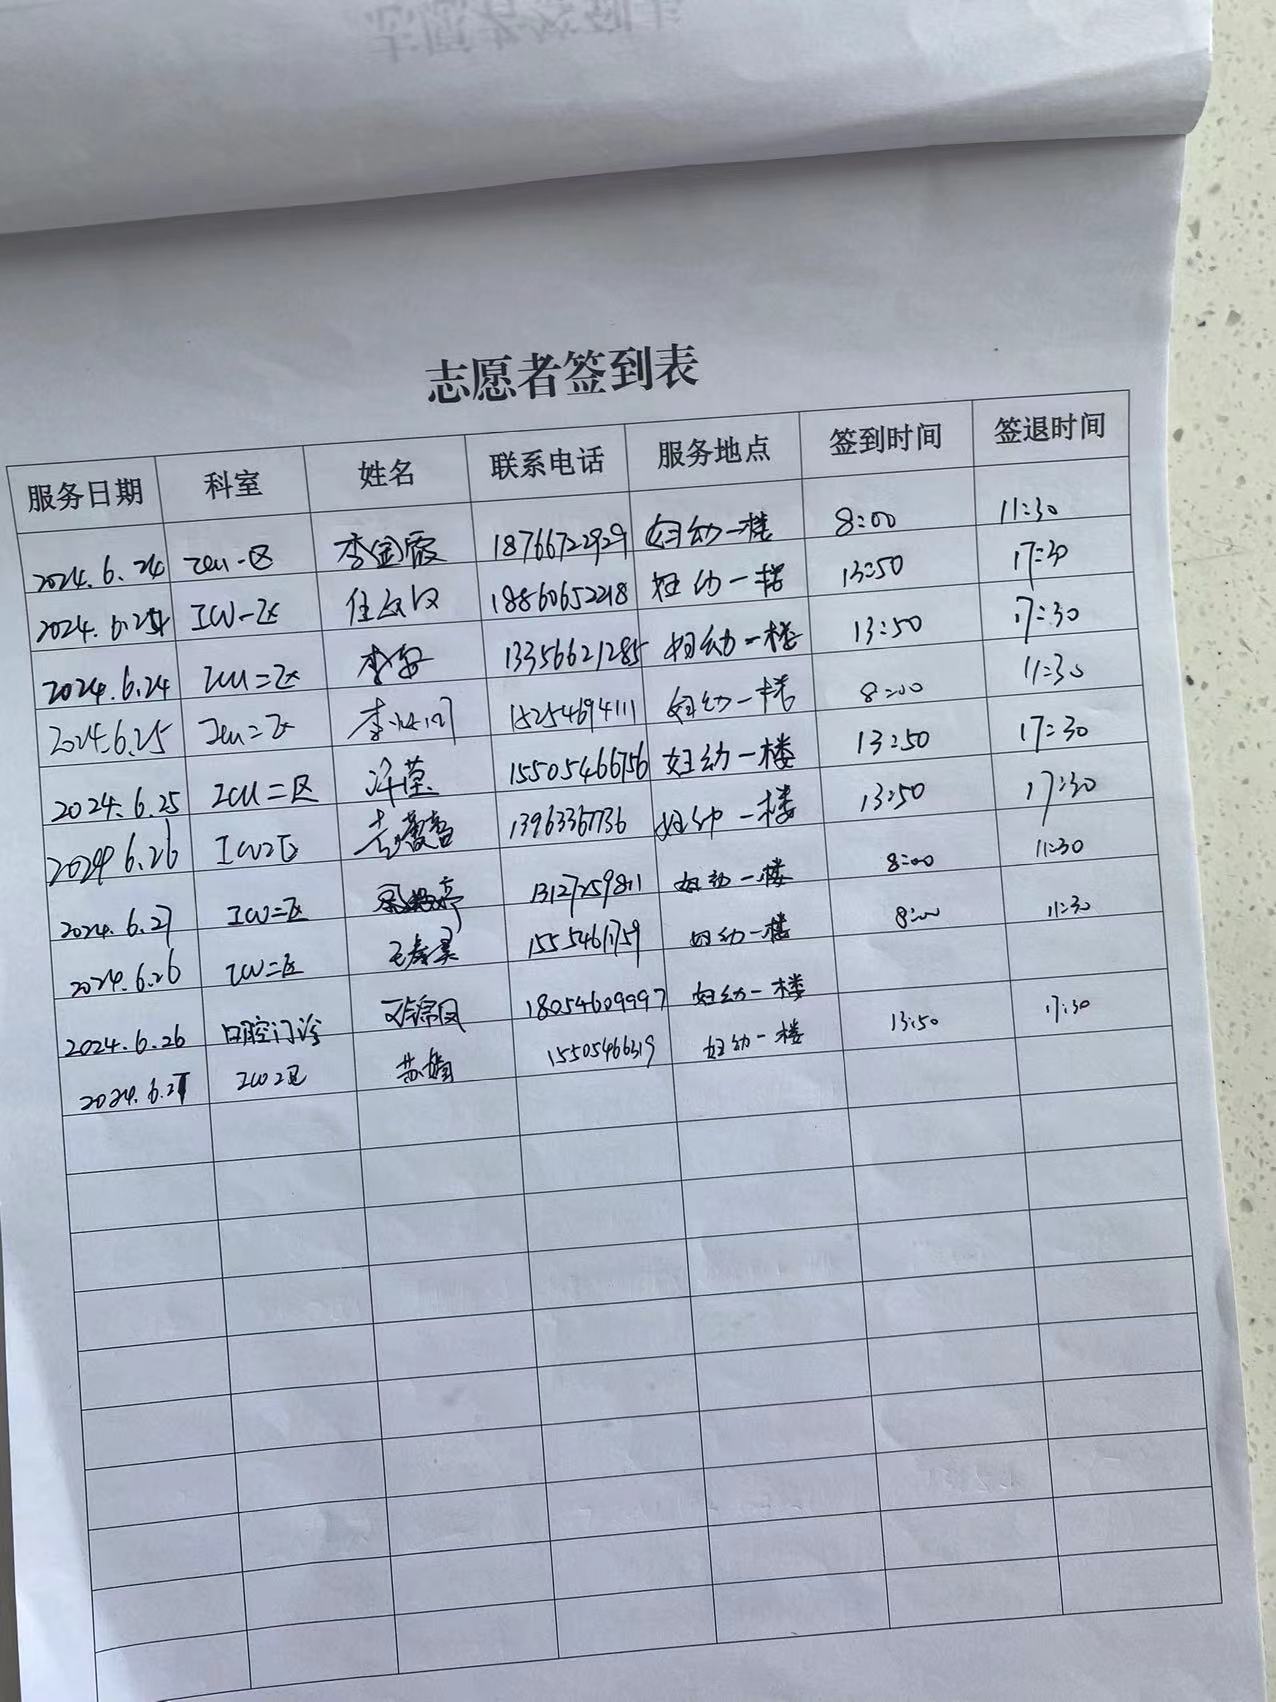 志愿者签到表
服务日期 科室 姓名 联系电话 服务地点 签到时间 签退时间
2024.6.24 ICU一区 李金霞 18766722929 妇幼一楼 8:00 11:30
ICU一区 18860652218 妇幼一楼 13:50 17:30
2024.6.24 ICU二区 13356621285 妇幼一楼 13:50 17:30
2024.6.25 ICU二区 15254694111 妇幼一楼 8:00 11:30
2024.6.25 ICU二区 15505466756 妇幼一楼 13:50 17:30
2024 6.26 ICU2区 13963367736 妇幼一楼 13:50 17:30
2024.6.27 ICU二区 13127259811 妇幼一楼 8:00 11:30
2024.6.26 ICU二区 15554671759 妇幼一楼 8:00 11:30
2024.6.26 口腔门诊 18054609997 妇幼一楼
2024.6.27 ICU2区 苏娟 妇幼一楼 13:50 17:30